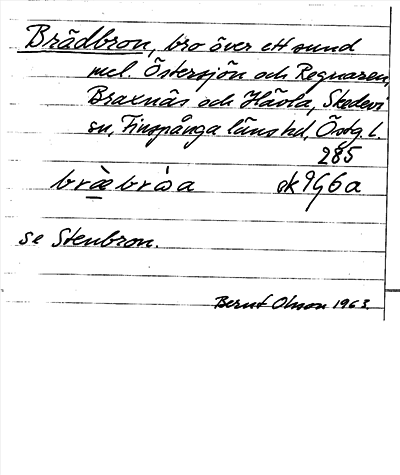 Brädbron, bro över ett sund
mel. Östersjön och Regnaren,
Braxnäs och Hävla, Skedevi
sn, Finspånga läns hd, Östg. l.
285
bræ̀brὼa ek 9G6a
se Stenbron.
Bernt Olsson 1963.